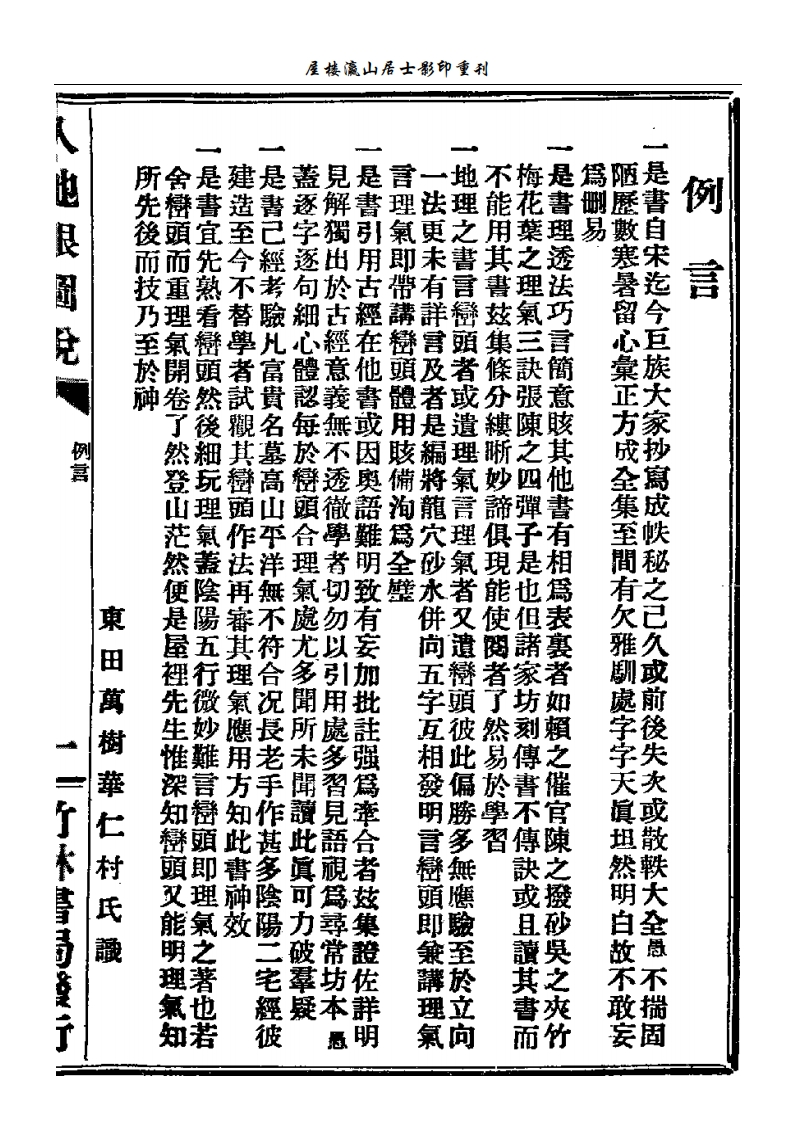 屋楼瀛山居士影印重刊
例言
一是書自宋迄今巨族大家抄寫成帙秘之已久或前後失次或散軼大全愚不揣固
陋歷數寒暑留心彙正方成全集至間有欠雅馴處字字天眞坦然明白故不敢妄
爲刪易
一是書理透法巧言簡意賅其他書有相爲表裏者如賴之催官陳之撥砂吳之夾竹
梅花葉之理氣三訣張陳之四彈子是也但諸家坊刻傳書不傳訣或且讀其書而
不能用其書玆集條分縷晰妙諦俱現能使閱者了然易於學習
一地理之書言巒頭者或遺理氣言理氣者又遺巒頭彼此偏勝多無應驗至於立向
一法更未有詳言及者是編將龍穴砂水併向五字互相發明言巒頭即兼講理氣
言理氣即帶講巒頭體用賅備洵爲全璧
一是書引用古經在他書或因奧語難明致有妄加批註强爲牽合者玆集證佐詳明
見解獨出於古經意義無不透徹學者切勿以引用處多習見語視爲尋常坊本愚
蓋逐字逐句細心體認每於巒頭合理氣處尤多聞所未聞讀此眞可力破羣疑
一是書已經考驗凡富貴名墓高山平洋無不符合况長老手作甚多陰陽二宅經彼
建造至今不替學者試觀其巒頭作法再審其理氣應用方知此書神效
一是書宜先熟看巒頭然後細玩理氣蓋陰陽五行微妙難言巒頭即理氣之著也若
舍巒頭而重理氣開卷了然登山茫然便是屋裡先生惟深知巒頭又能明理氣知
所先後而技乃至於神
東田萬樹華仁村氏識
入地眼圖說
例言
一
竹林書局發行